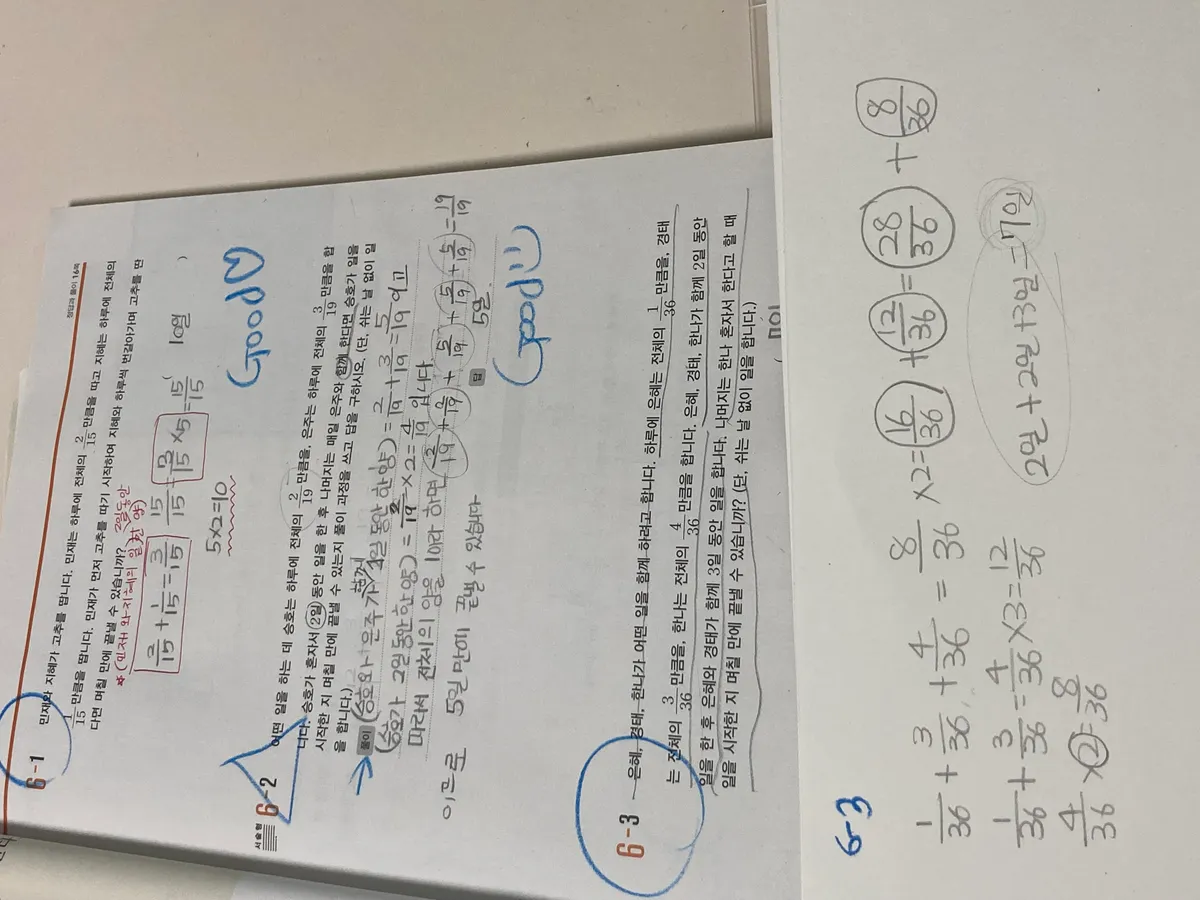 정답과 풀이 16쪽
6-1
민재와 지혜가 고추를 땁니다. 민재는 하루에 전체의 2/15 만큼을 따고 지혜는 하루에 전체의
1/15 만큼을 땁니다. 민재가 먼저 고추를 따기 시작하여 지혜와 하루씩 번갈아가며 고추를 딴
다면 며칠 만에 끝낼 수 있습니까?
* (민재와 지혜의 2일동안 일한 양)
2/15 + 1/15 = 3/15
15/15 = 3/15 ×5 = 15/15
( 10일 )
5×2=10
Good♡
서술형 6-2
어떤 일을 하는 데 승호는 하루에 전체의 2/19 만큼을, 은주는 하루에 전체의 3/19 만큼을 합
니다. 승호가 혼자서 2일 동안 일을 한 후 나머지는 매일 은주와 함께 한다면 승호가 일을
시작한 지 며칠 만에 끝낼 수 있는지 풀이 과정을 쓰고 답을 구하시오. (단, 쉬는 날 없이 일
을 합니다.)
풀이 (승호와 은주가 함께 1일 동안 한 양) = 2/19 + 3/19 = 5/19 이고
(승호가 2일 동안 한 양) = 2/19 ×2= 4/19 입니다.
따라서 전체의 양을 1이라 하면 2/19 + 2/19 + 5/19 + 5/19 + 5/19 = 19/19
이므로 5일 만에 끝낼 수 있습니다
답 5일
Good!
6-3
은혜, 경태, 한나가 어떤 일을 함께 하려고 합니다. 하루에 은혜는 전체의 1/36 만큼을, 경태
는 전체의 3/36 만큼을, 한나는 전체의 4/36 만큼을 합니다. 은혜, 경태, 한나가 함께 2일 동안
일을 한 후 은혜와 경태가 함께 3일 동안 일을 합니다. 나머지는 한나 혼자서 한다고 할 때
일을 시작한 지 며칠 만에 끝낼 수 있습니까? (단, 쉬는 날 없이 일을 합니다.)
6-3
1/36 + 3/36 + 4/36 = 8/36 ×2= 16/36 + 12/36 = 28/36 + 8/36
1/36 + 3/36 = 4/36 ×3= 12/36
4/36 ×2= 8/36
2일 + 2일 +3일=7일